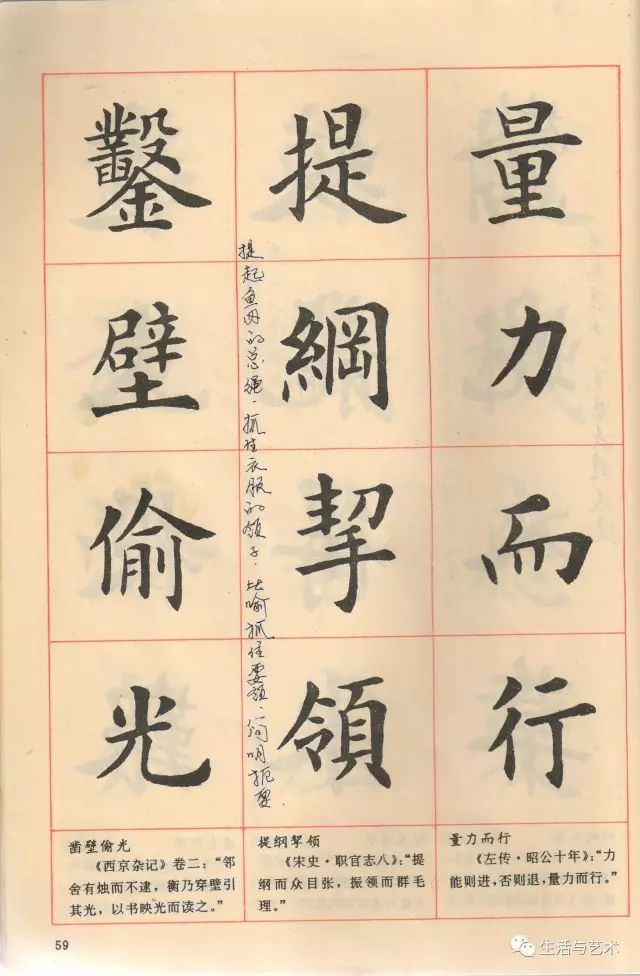 量力而行
提綱挈領
提起鱼网的总绳，抓住衣服的领子，比喻抓住要领，简明扼要。
鑿壁偷光
量力而行
《左传·昭公十年》：“力
能则进，否则退，量力而行。”
提纲挈领
《宋史·职官志八》：“提
纲而众目张，振领而群毛
理。”
凿壁偷光
《西京杂记》卷二：“邻
舍有烛而不逮，衡乃穿壁引
其光，以书映光而读之。”
59
生活与艺术